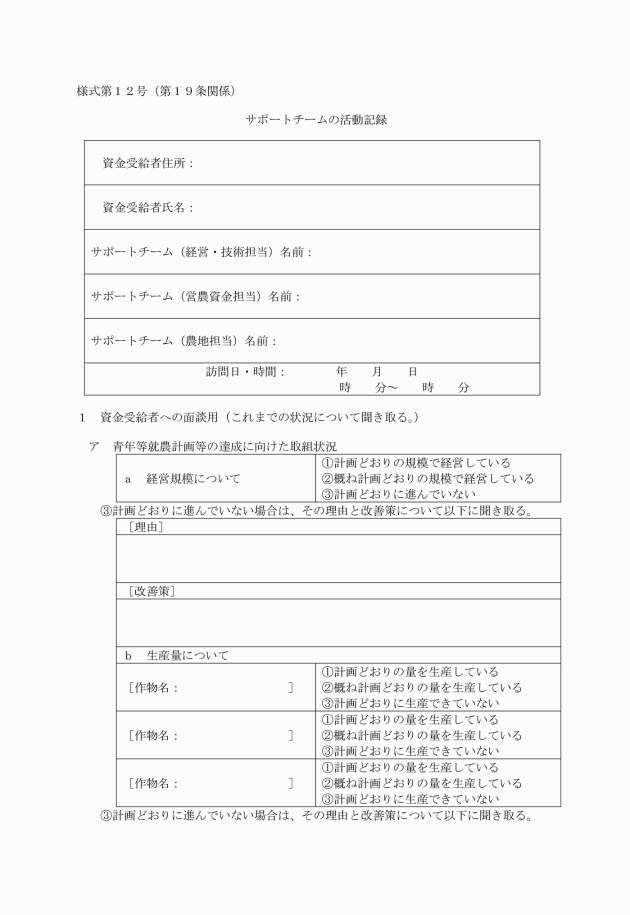 様式第１２号（第１９条関係）
サポートチームの活動記録
資金受給者住所：
資金受給者氏名：
サポートチーム（経営・技術担当）名前：
サポートチーム（営農資金担当）名前：
サポートチーム（農地担当）名前：
訪問日・時間：　　　　年　　月　　日
時　　分～　　時　　分
１　資金受給者への面談用（これまでの状況について聞き取る。）
ア　青年等就農計画等の達成に向けた取組状況
ａ　経営規模について
①計画どおりの規模で経営している
②概ね計画どおりの規模で経営している
③計画どおりに進んでいない
③計画どおりに進んでいない場合は、その理由と改善策について以下に聞き取る。
［理由］
［改善策］
ｂ　生産量について
［作物名：　　　　　　　　　］
①計画どおりの量を生産している
②概ね計画どおりの量を生産している
③計画どおりに生産できていない
［作物名：　　　　　　　　　］
①計画どおりの量を生産している
②概ね計画どおりの量を生産している
③計画どおりに生産できていない
［作物名：　　　　　　　　　］
①計画どおりの量を生産している
②概ね計画どおりの量を生産している
③計画どおりに生産できていない
③計画どおりに進んでいない場合は、その理由と改善策について以下に聞き取る。